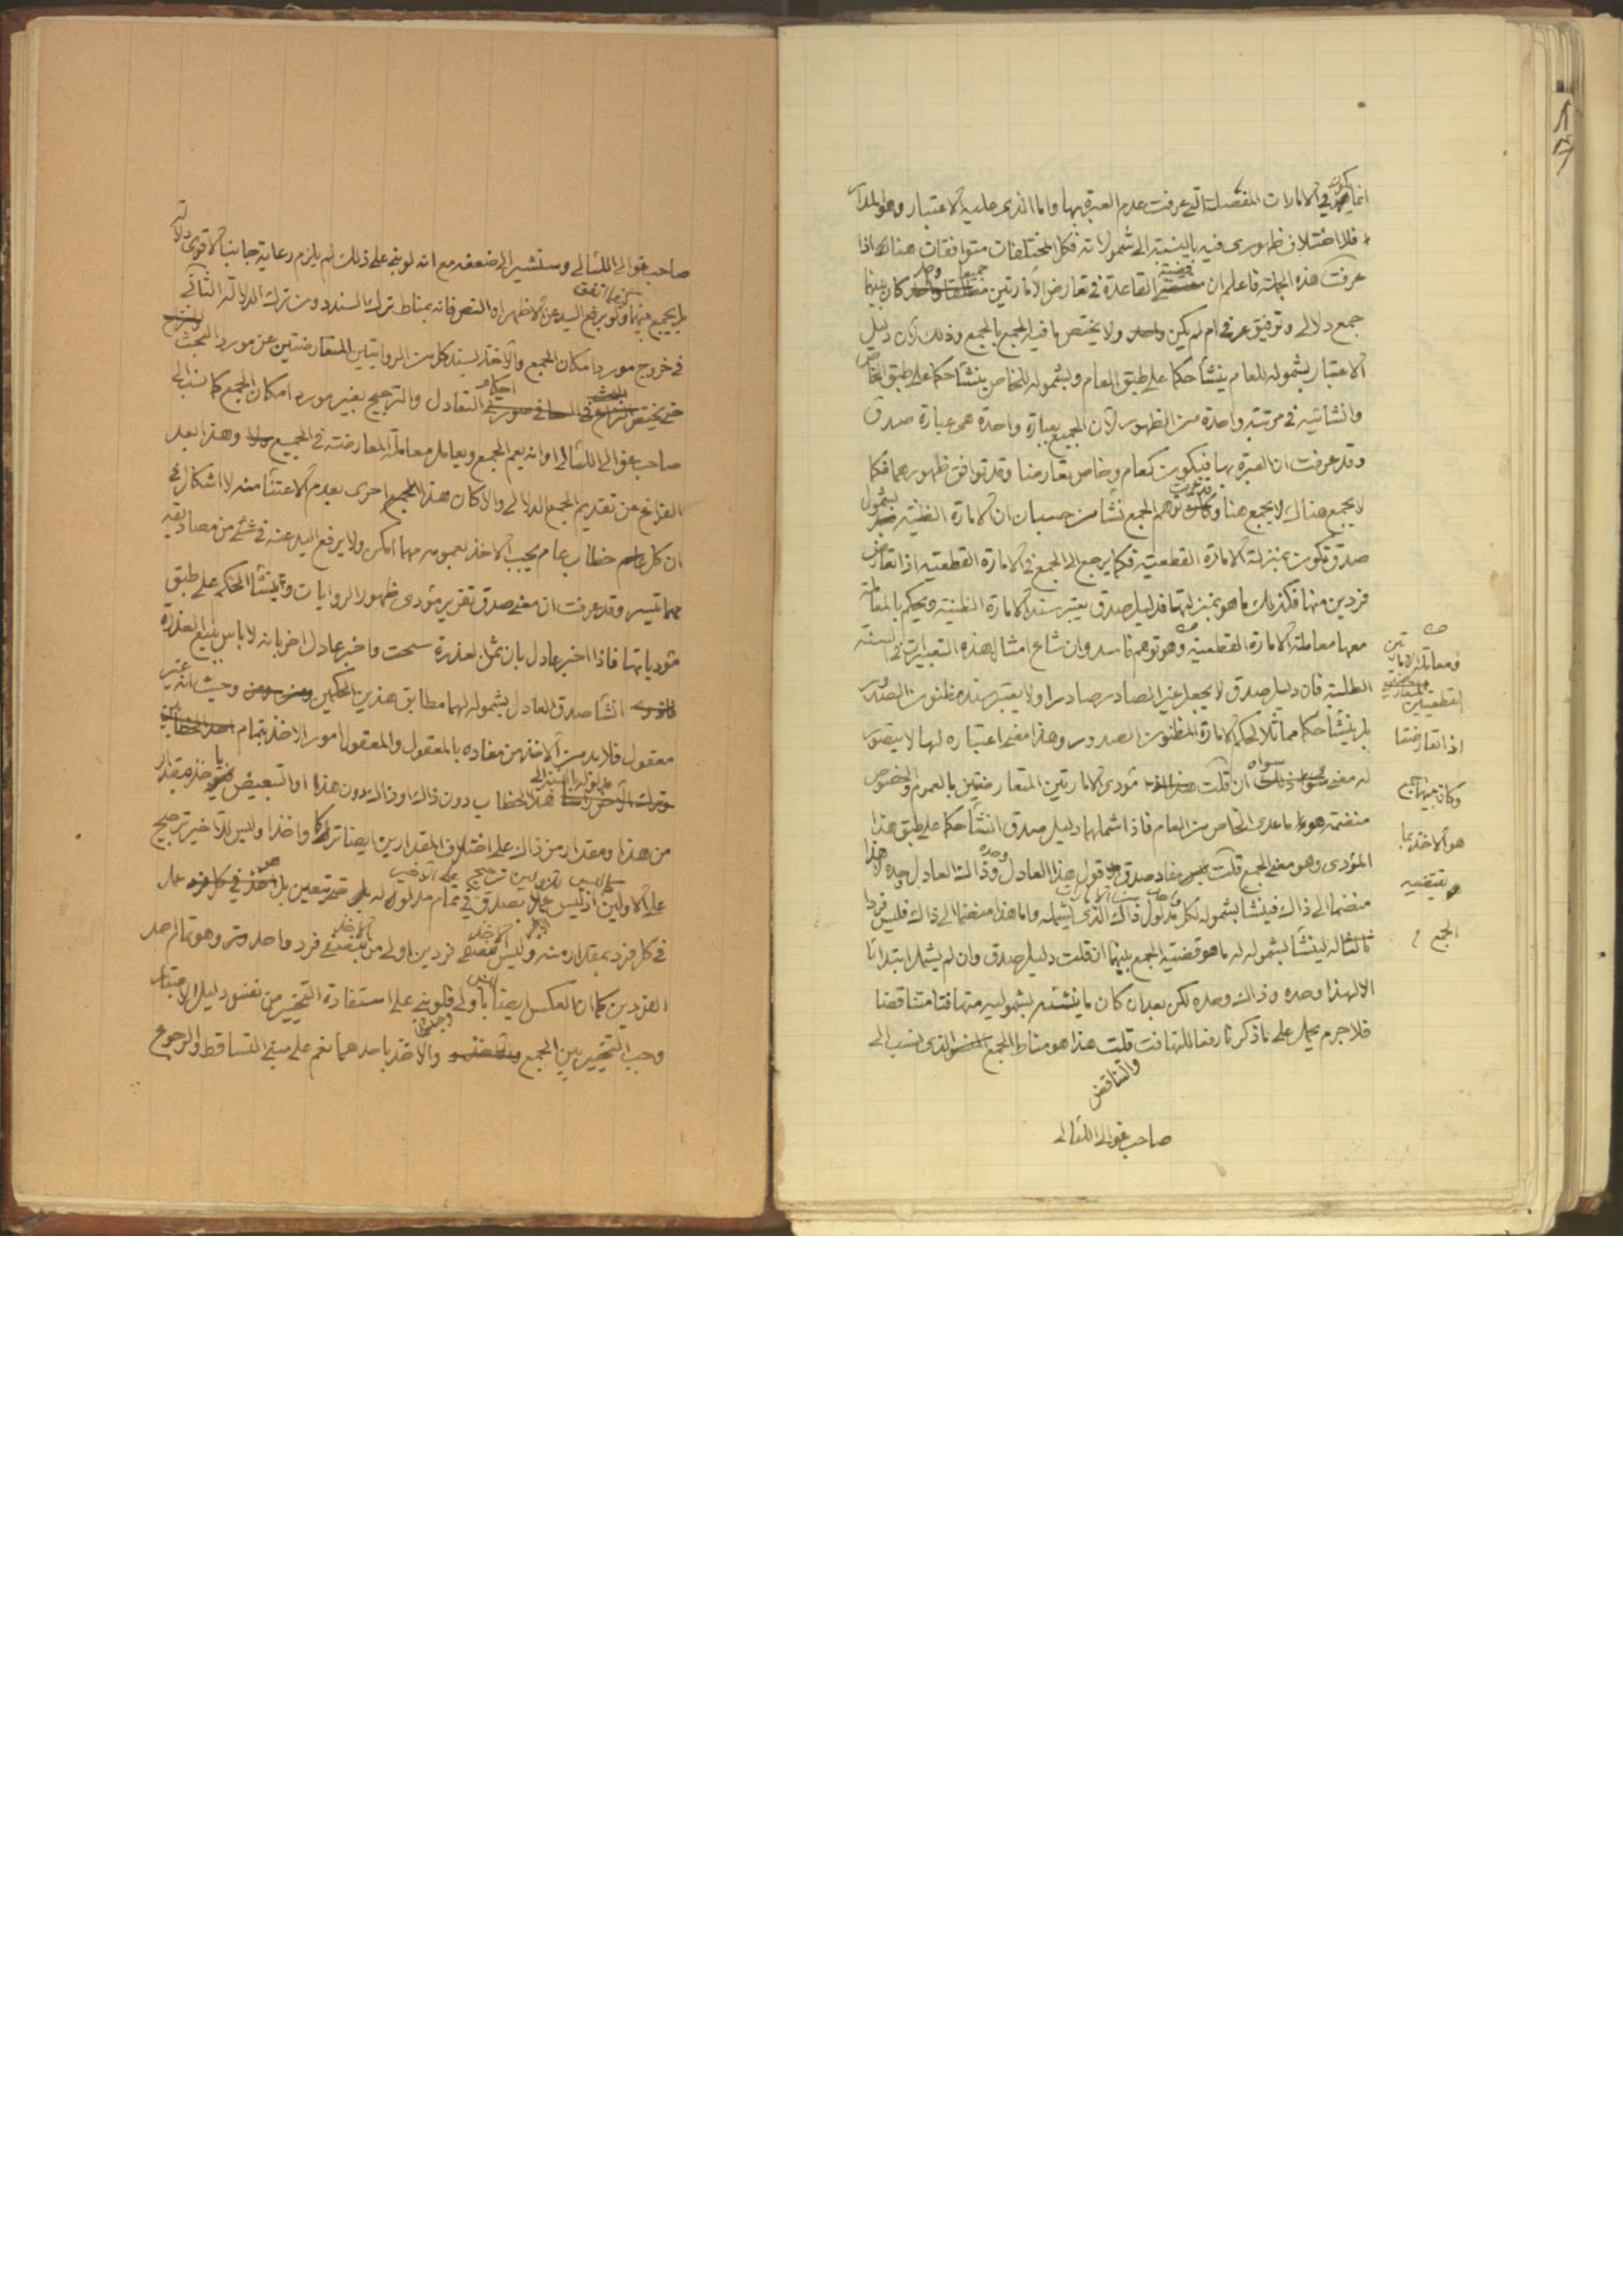 انما يكون في الامارات المفصلة التي عرفت عدم العبرة بها واما الذي عليه الاعتبار وهو المدار
فلا اختلاف ظهوري فيه بالنسبة الى شمولاته فكل المختلفات متوافقات هناك اذا
عرفت هذه الجملة فاعلم ان قضية القاعدة في تعارض الأمارتين جميعا كان بينهما
جمع دلالي وتوفيق عرفي ام لم يكن ولا يختص ما فيه الجمع بالجمع وذلك لان دليل
الاعتبار بشموله للعام ينشأ حكما على طبق العام وبشموله للخاص ينشأ حكما على طبق الخاص
وانشائيه في مرتبة واحدة من الظهور لان الجميع بعبارة واحدة هي عبارة صدق
وقد عرفت ان العبرة بها فيكون كعام وخاص تعارضا وقد توافق ظهورهما فكما
لا يجمع هناك لا يجمع هنا وتوهم الجمع نشأ من حسبان ان الامارة الظنية بشمول
صدق تكون بمنزلة الامارة القطعية فكما يرجع الى الجمع في الامارة القطعية اذا تعارض
فردين منها فكذلك ما هو بمنزلتها فدليل صدق يعتبر سند الامارة الظنية ويحكم بالمعاملة
معها معاملة الامارة القطعية وهو توهم فاسد وان شاع امثال هذه التعبيرات في السنة
الطلبة فان دليل صدق لا يجعل غير الصادر صادرا ولا يعتبر سند مظنون الصدور
بل ينشأ حكما مماثلا لحكم الامارة المظنون الصدور وهذا معنى اعتباره لها لا يتصور
له معنى سواه ان قلت مؤدى الامارتين المتعارضتين بالعموم والخصوص
منضمة هو ما عدى الخاص من العام فاذا شملهما دليل صدق انشأ حكما على طبق هذا
المؤدى وهو معنى الجمع قلت مفاد صدق قول هذا العادل وحده وذاك العادل وحده لا هذا
منضما الى ذاك فينشأ بشموله لكل مدلول ذاك الذي يشمله واما هذا منضما الى ذاك فليس فردا
ثالثا له لينشأ بشموله له ما هو قضية الجمع بينهما ان قلت دليل صدق وان لم يشمل ابتدائا
الا لهذا وحده وذاك وحده لكن بعد ان كان ما ينشئه بشموليه متهافتا متناقضا
فلا جرم يحمل على ما ذكر نا رفعا للتهافت والتناقض قلت هذا هو مناط الجمع الذي نسب الى
صاحب غوالي اللئالي
ومعاملة الامارتين
القطعيتين
اذا تعارضتا
وكان بينهما جمع
هو الاخذ بما
يقتضيه
الجمع
صاحب غوالي اللئالي وسنشير الى ضعفه مع انه لو بني على ذلك لم يلزم رعاية جانب الاقوى دلالة
بل يجمع بينهما كيفما اتفق ولو برفع اليد عن الاظهر او النص فانه بمناط ترك السند دون ترك الدلالة الثاني
في خروج مورد امكان الجمع والاخذ بسند كل من الروايتين المتعارضتين عن مورد البحث
حتى يختص احكام التعادل والترجيح بغير مورد امكان الجمع كما نسب الى
صاحب غوالي اللئالي او انه يعم الجمع ويعامل معاملة المعارضة في الجميع وهذا بعد
الفراغ عن تقديم الجمع الدلالي والا كان هذا الجمع احرى بعدم الاعتناء منه لا اشكال في
ان كل خطاب عام يجب الاخذ بعمومه مهما امكن ولا يرفع اليد عنه في شئ من مصاديقه
مهما تيسر وقد عرفت ان معنى صدق تقرير مؤدى ظهور الروايات وينشأ الحكم على طبق
مؤدياتها فاذا اخبر عادل بان ثمن العذرة سحت واخبر عادل اخر بانه لا باس ببيع العذرة
انشأ صدق العادل بشموله لهما مطابق هذين الحكمين وحيث انه غير
معقول فلا بد من الاخذ من مفاده بالمعقول والمعقول امور الاخذ بتمام
هذا الخطاب دون ذاك او ذاك دون هذا او التبعيض باخذ مقدار
من هذا ومقدار من ذاك على اختلاف المقدارين ايضا تركا واخذا وليس للاخير ترجيح
على الاولين اذ ليس عمل بصدق في تمام مدلوله حتى يتعين بل هو عمل
في كل فرد بمقدار منه وليس الاخذ فردين اولى من الاخذ فرد واحد وهو تمام احد
الفردين كما ان العكس ايضا ليس باولى فلو بني على استفادة التخيير من نفس دليل الاعتبار
وجب التخيير بين الجمع والاخذ باحدهما نعم على مبنى التساقط والرجوع